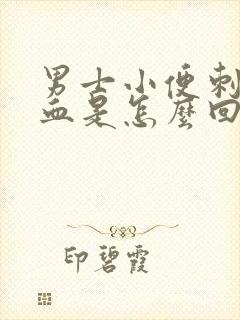 男士小便刺
血是怎麼回
印碧霞